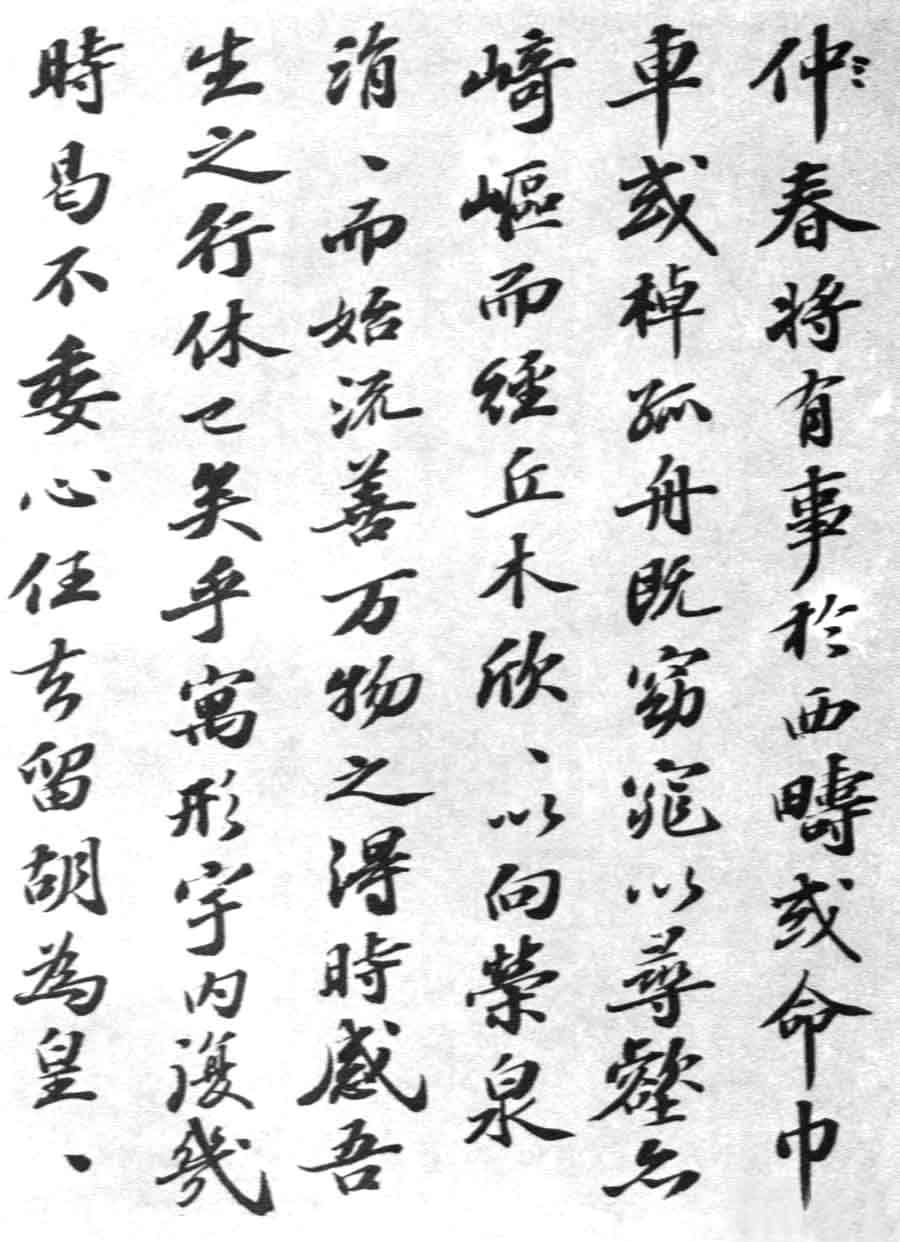 仲春将有事於西疇或命巾
車或棹孤舟既窈窕以尋壑亦
崎嶇而經丘木欣、以向榮泉
涓、而始流善万物之得時感吾
生之行休已矣乎寓形宇内復幾
時曷不委心任去留胡為皇、